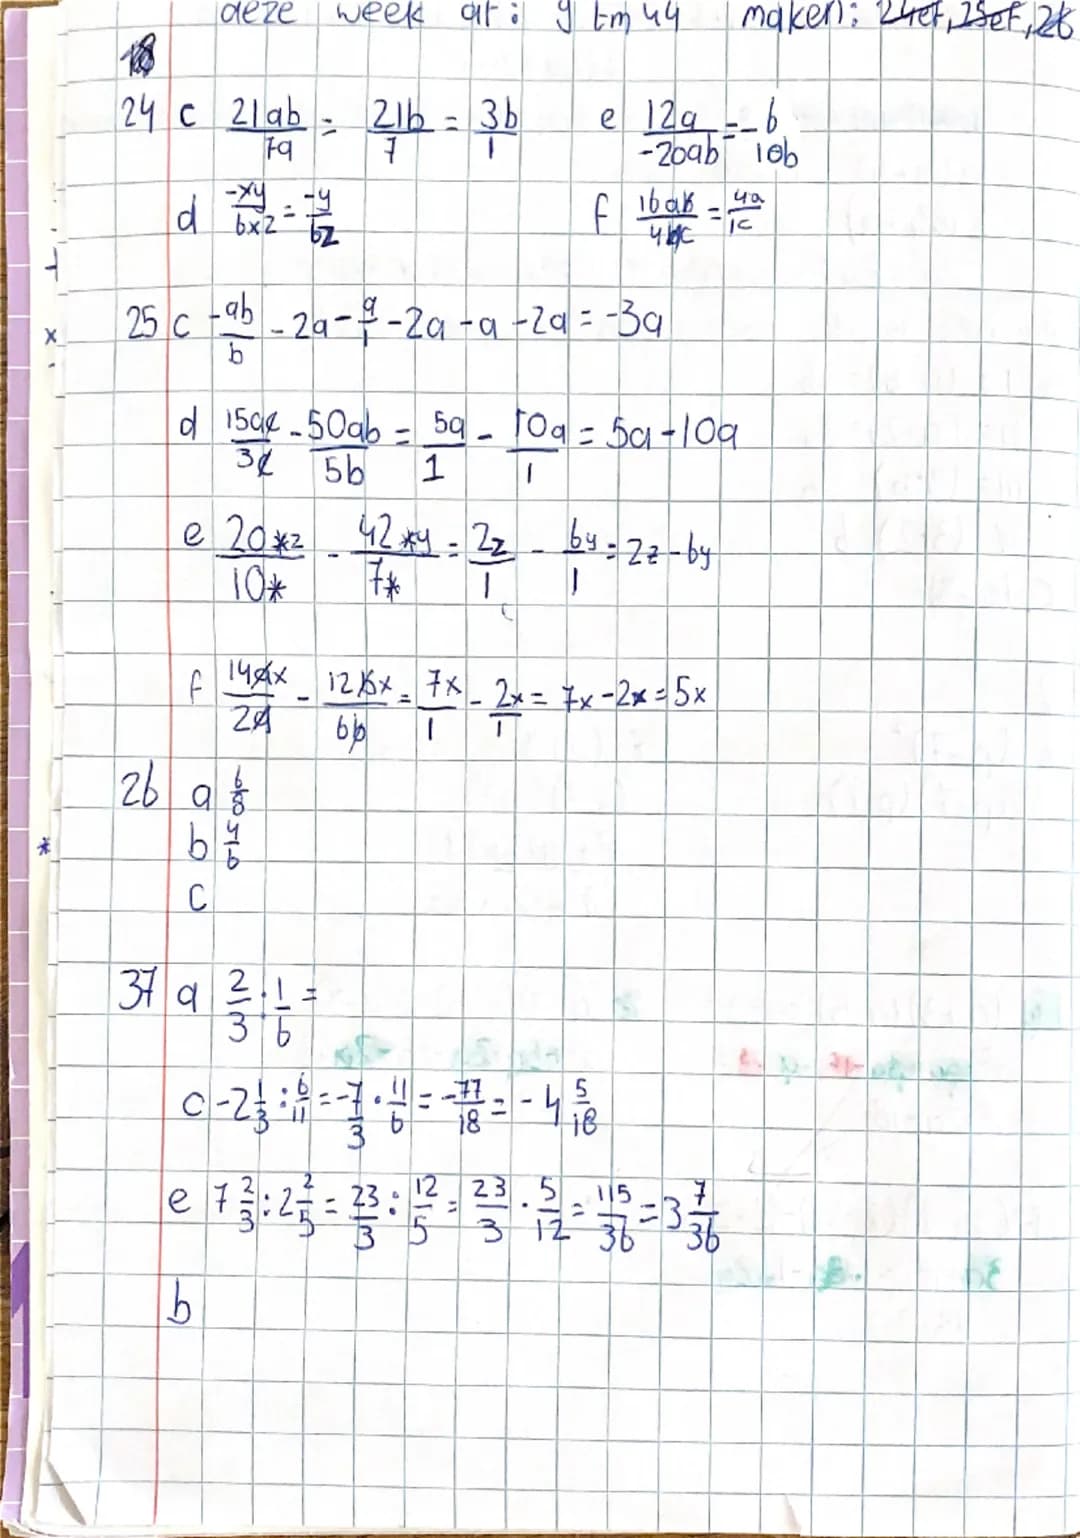 deze week af: 9 tm 44 maken: 24ef, 25ef, 26
18
24 c 21ab/7a = 21b/7 = 3b/1 e 12a/-20ab = -6/10b
d -xy/6xz = -y/6z f 16ab/4bc = 4a/1c
25 c -ab/b - 2a - a/1 - 2a - a - 2a = -3a
d 15ac/3c - 50ab/5b = 5a/1 - 10a/1 = 5a - 10a
e 20xz/10x - 42xy/7x = 2z/1 - 6y/1 = 2z - 6y
f 14ax/2a - 12bx/6b = 7x/1 - 2x/1 = 7x - 2x = 5x
26 a 6/8
b 4/6
c
37 a 2/3 : 1/6 =
c -2 1/3 : 6/11 = -7/3 · 11/6 = -77/18 = -4 5/18
e 7 2/3 : 2 2/5 = 23/3 : 12/5 = 23/3 · 5/12 = 115/36 = 3 7/36
b